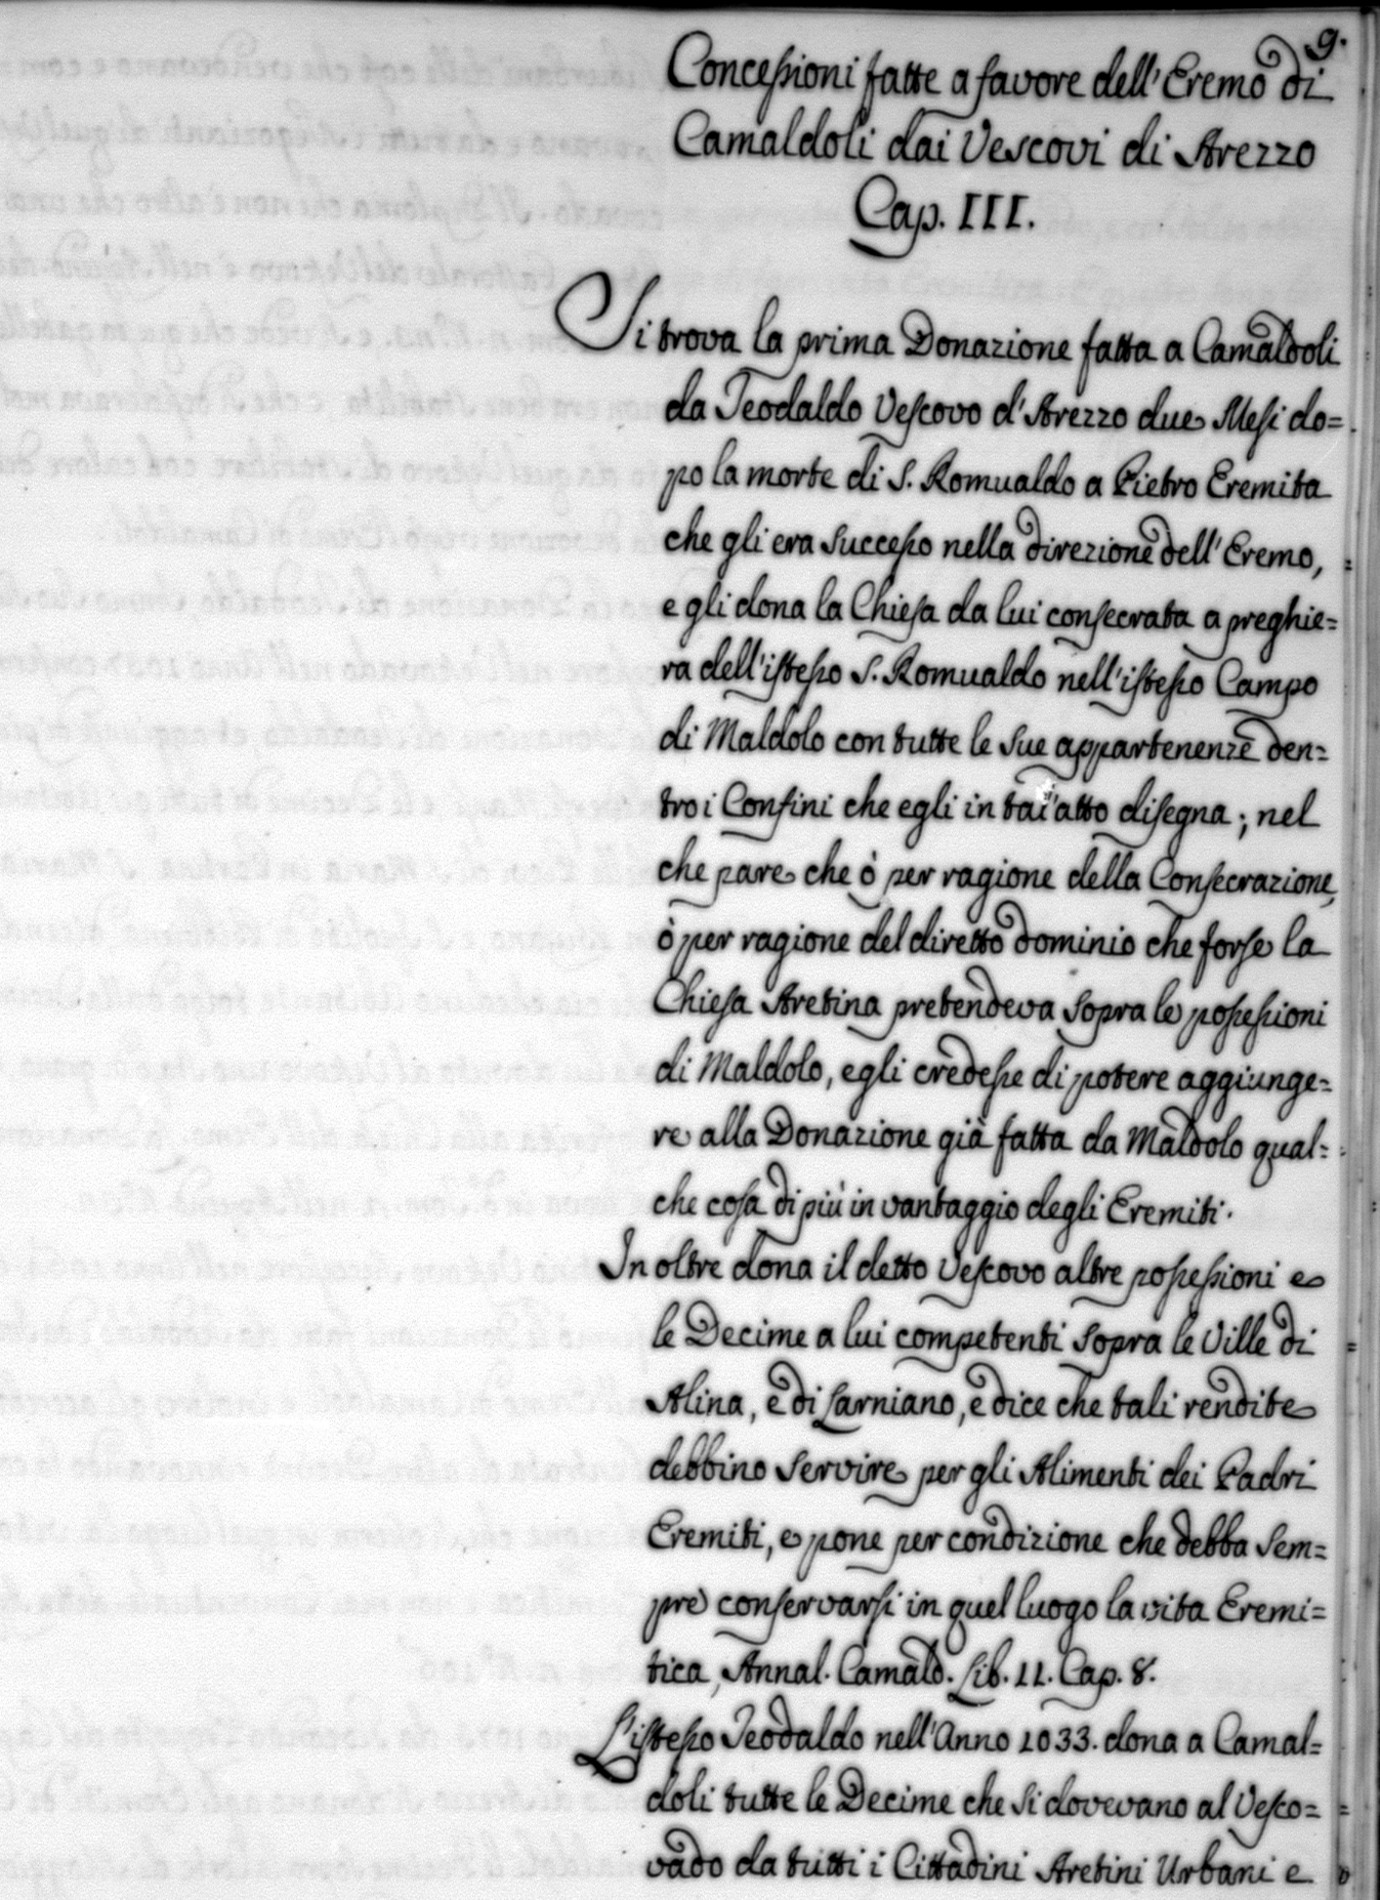 9.
Concessioni fatte a favore dell'Eremo di
Camaldoli dai Vescovi di Arezzo
Cap. III.
Si trova la prima Donazione fatta a Camaldoli
da Teodaldo Vescovo d'Arezzo due Mesi do=
po la morte di S. Romualdo a Pietro Eremita
che gli era successo nella direzione dell'Eremo,
e gli dona la Chiesa da lui consecrata a preghie=
ra dell'istesso S. Romualdo nell'istesso Campo
di Maldolo con tutte le sue appartenenze den=
tro i Confini che egli in tal'atto disegna; nel
che pare che ò per ragione della Consecrazione,
ò per ragione del diretto dominio che forse la
Chiesa Aretina pretendeva sopra le possessioni
di Maldolo, egli credesse di potere aggiunge=
re alla Donazione già fatta da Maldolo qual=
che cosa di più in vantaggio degli Eremiti.
In oltre dona il detto Vescovo altre possessioni e
le Decime a lui competenti sopra le Ville di
Alina, e di Larniano, e dice che tali rendite
debbino servire per gli Alimenti dei Padri
Eremiti, e pone per condizione che debba sem=
pre conservarsi in quel luogo la vita Eremi=
tica, Annal. Camald. Lib. 11. Cap. 8.
L'istesso Teodaldo nell'Anno 1033. dona a Camal=
doli tutte le Decime che si dovevano al Vesco=
vado da tutti i Cittadini Aretini Urbani e